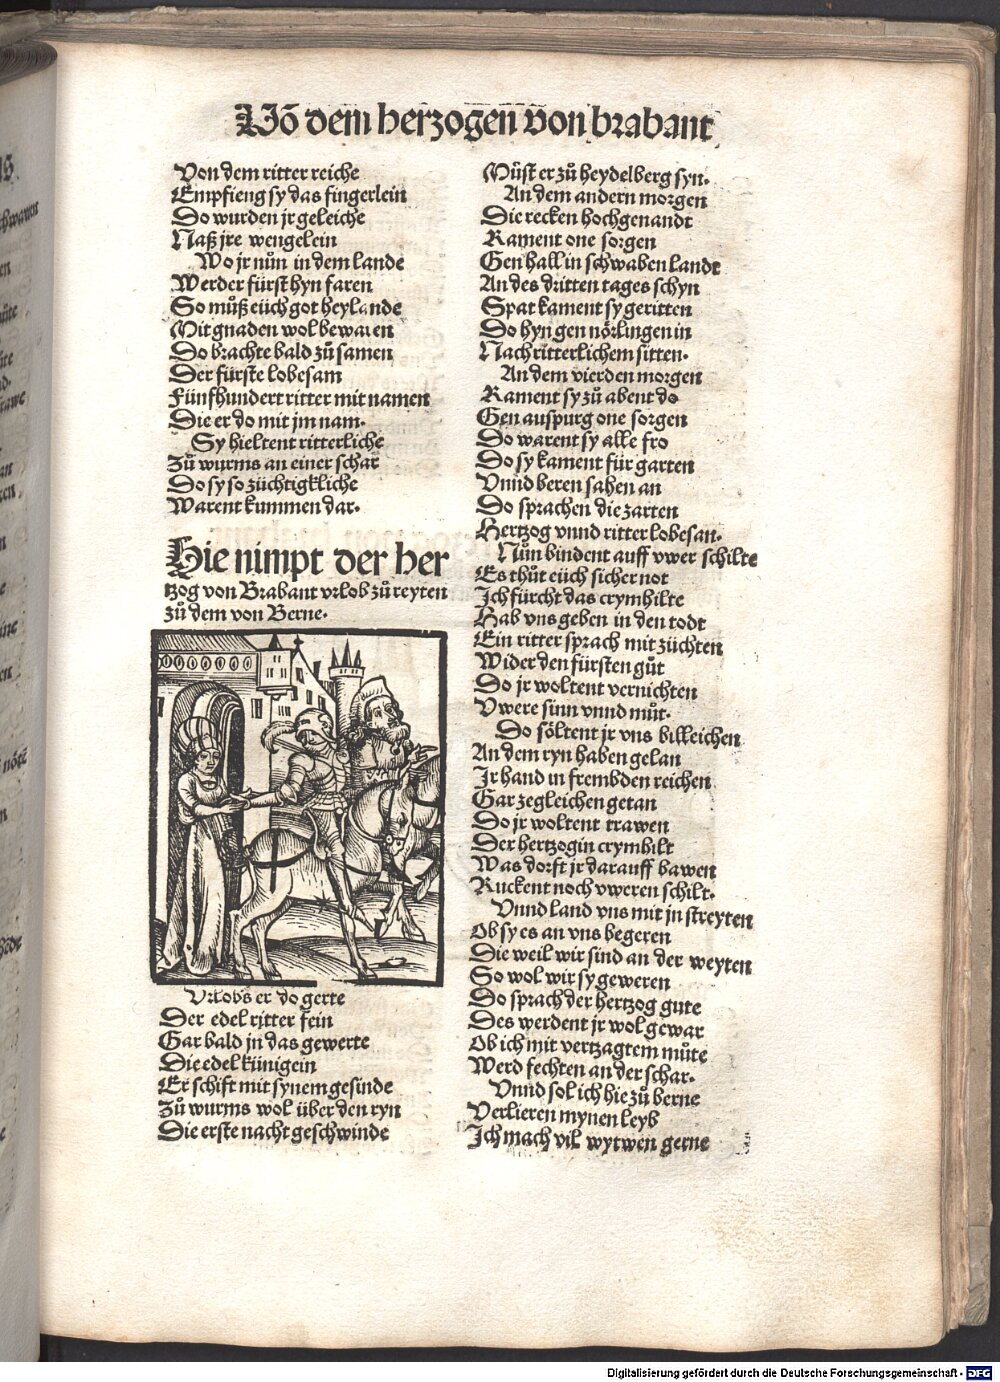 Võ dem hertzogen von brabant
Von dem ritter reiche
Empfieng sy das fingerlein
Do wurden jr geleiche
Naß jre wengelein
Wo jr nůn in dem lande
Werder fürst hyn faren
So můß eüch got heylande
Mit gnaden wol bewaren
Do brachte bald zů samen
Der fürste lobesam
Fünfhundert ritter mit namen
Die er do mit jm nam.
Sy hieltent ritterliche
Zů wurms an einer schar
Do sy so züchtigkliche
Warent kummen dar.
Hie nimpt der her
tzog von Brabant vrlob zů reyten
zů dem von Berne.
Vrlobs er do gerte
Der edel ritter fein
Gar bald jn das gewerte
Die edel künigein
Er schift mit synem gesinde
Zů wurms wol über den ryn
Die erste nacht geschwinde
Můst er zů heydelberg syn.
An dem andern morgen
Die recken hochgenandt
Kament one sorgen
Gen hall in schwaben landt
An des dritten tages schyn
Spat kament sy geritten
Do hyn gen nörlingen in
Nach ritterlichem sitten.
An dem vierden morgen
Kament sy zů abent do
Gen auspurg one sorgen
Do warent sy alle fro
Do sy kament für garten
Vnnd beren sahen an
Do sprachen die zarten
Hertzog vnnd ritter lobesan.
Nůn bindent auff vwer schilte
Es thůt eüch sicher not
Ich fürcht das crymhilte
Hab vns geben in den todt
Ein ritter sprach mit züchten
Wider den fürsten gůt
Do jr woltent vernichten
Vwere sinn vnnd můt.
Do söltent jr vns billeichen
An dem ryn haben gelan
Jr hand in frembden reichen
Gar zegleichen getan
Do jr woltent trawen
Der hertzogin crymhilt
Was dorft jr darauff bawen
Ruckent noch vweren schilt.
Vnnd land vns mit jn streyten
Ob sy es an vns begeren
Die weil wir sind an der weyten
So wol wir sy geweren
Do sprach der hertzog gute
Des werdent jr wol gewar
Ob ich mit vertzagtem můte
Werd fechten an der schar.
Vnnd sol ich hie zů berne
Verlieren mynen leyb
Ich mach vil wytwen gerne
Digitalisierung gefördert durch die Deutsche Forschungsgemeinschaft - DFG